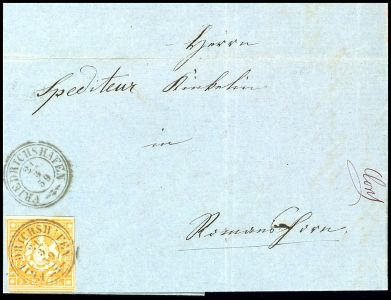 Herrn
Spediteur Kinkelin
in
Romanshorn.
FRIEDRICHSHAFEN
FRIEDRICHSHAFEN